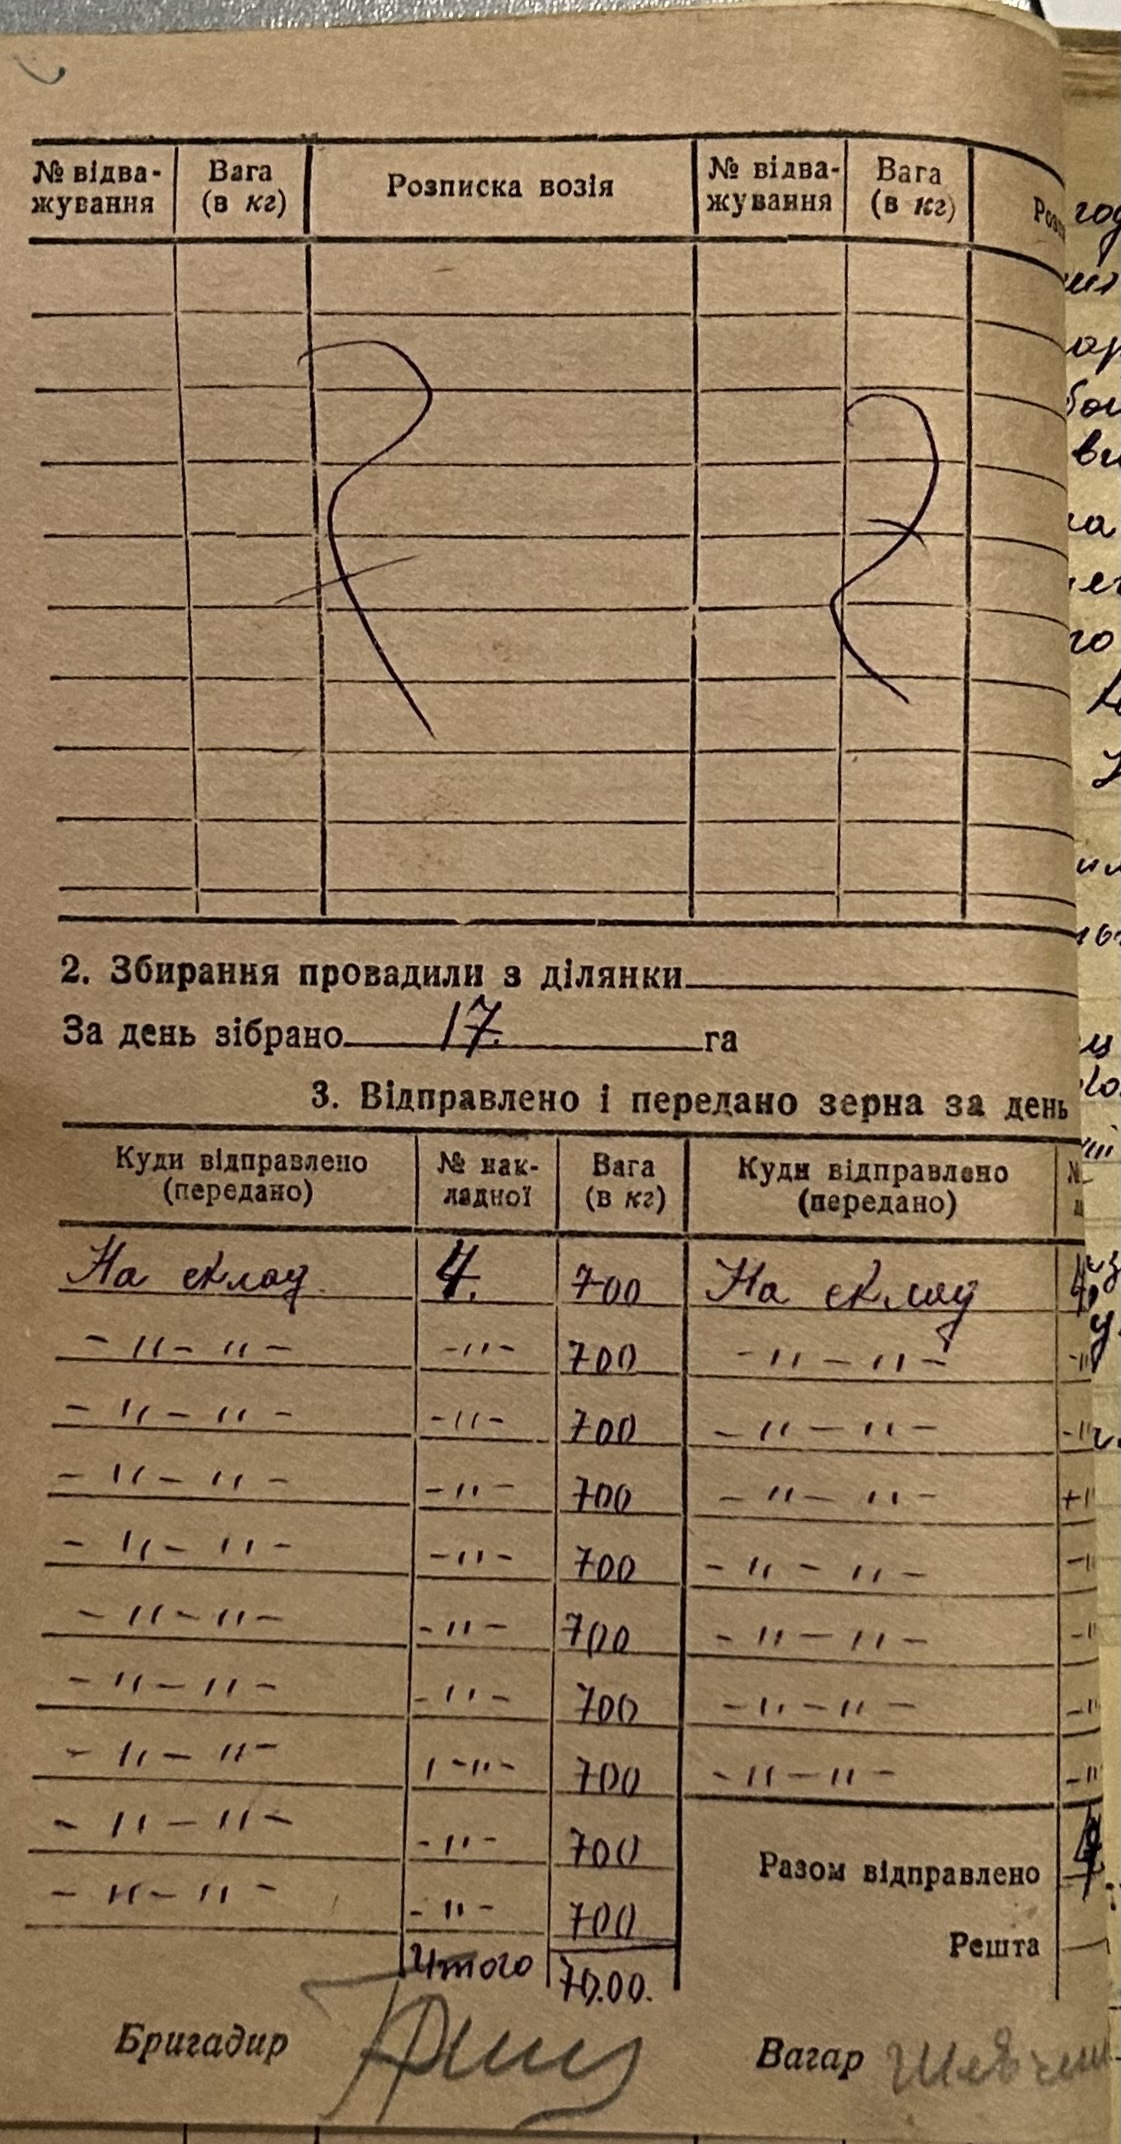 № відва-жування Вага (в кг) Розписка возія № відва-жування Вага (в кг)
2. Збирання провадили з ділянки
За день зібрано 17. га
3. Відправлено і передано зерна за день
Куди відправлено (передано) № нак-ладної Вага (в кг) Куди відправлено (передано)
На склад 4. 700 На склад
-"-"- -"- 700 -"-"-
-"-"- -"- 700 -"-"-
-"-"- -"- 700 -"-"-
-"-"- -"- 700 -"-"-
-"-"- -"- 700 -"-"-
-"-"- -"- 700 -"-"-
-"-"- -"- 700 -"-"-
-"-"- -"- 700
Разом відправлено
-"-"- -"- 700
Решта
Итого 70.00.
Бригадир Вагар